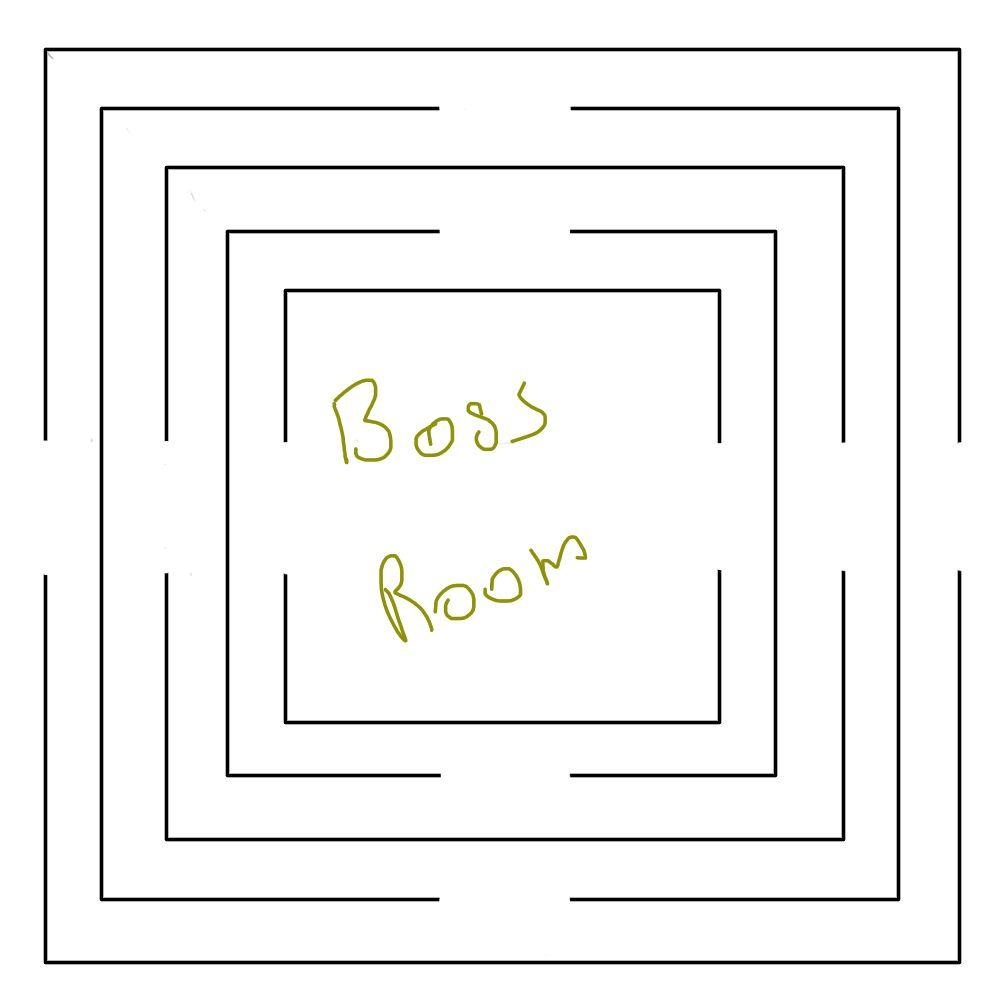 Boss
Room